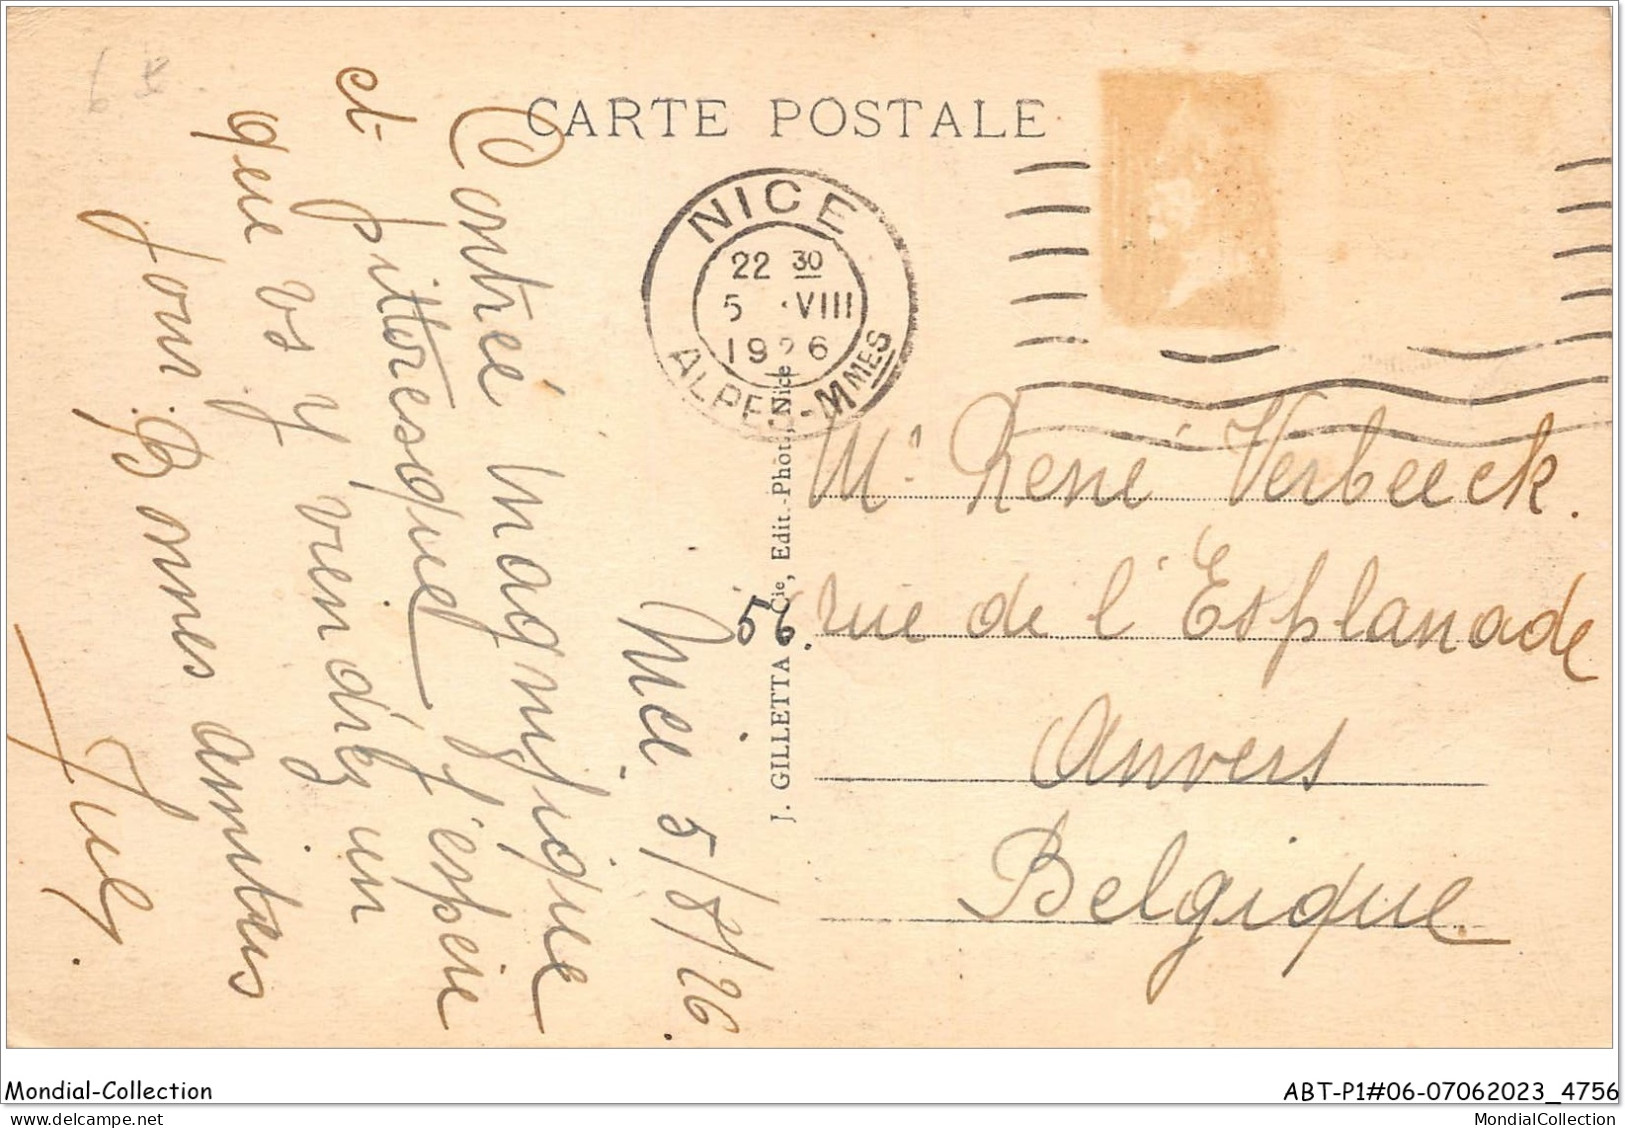 CARTE POSTALE
NICE
22 30
5 VIII
1926
ALPES-MMES
J. GILLETTA & Cie, Edit.-Phot., Nice
Nice 5/8/26
Contrée magnifique
et pittoresque j'espère
que vs y viendréz un
jour. Bonnes amities
Jules.
Mr René Verbeeck.
56 rue de l'Esplanade
Anvers
Belgique
Mondial-Collection
ABT-P1#06-07062023_4756
www.delcampe.net
MondialCollection